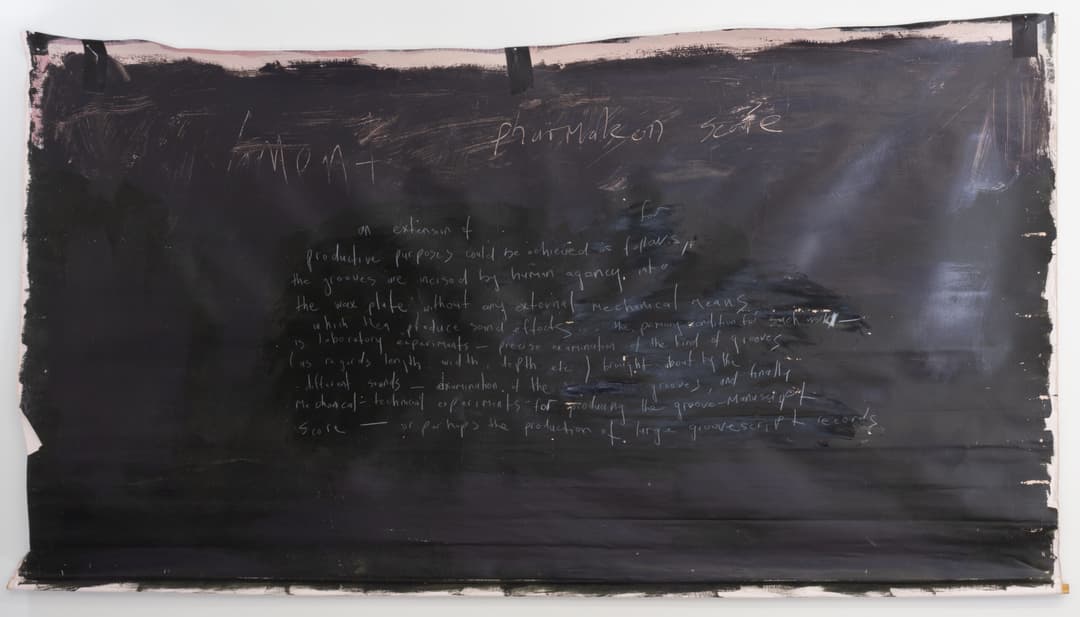 pharmakon score
for
an extension of
productive purposes could be achieved as follows,
the grooves are incised by human agency. into
the wax plate, without any external mechanical means
which then produce sound effects the primary condition for such
is laboratory experiments — precise examination of the kind of grooves
(as regards length width depth etc) brought about by the
different sounds — examination of the grooves, and finally
mechanical-technical experiments for producing the groove-manuscript
score — or perhaps the production of large groovescript records